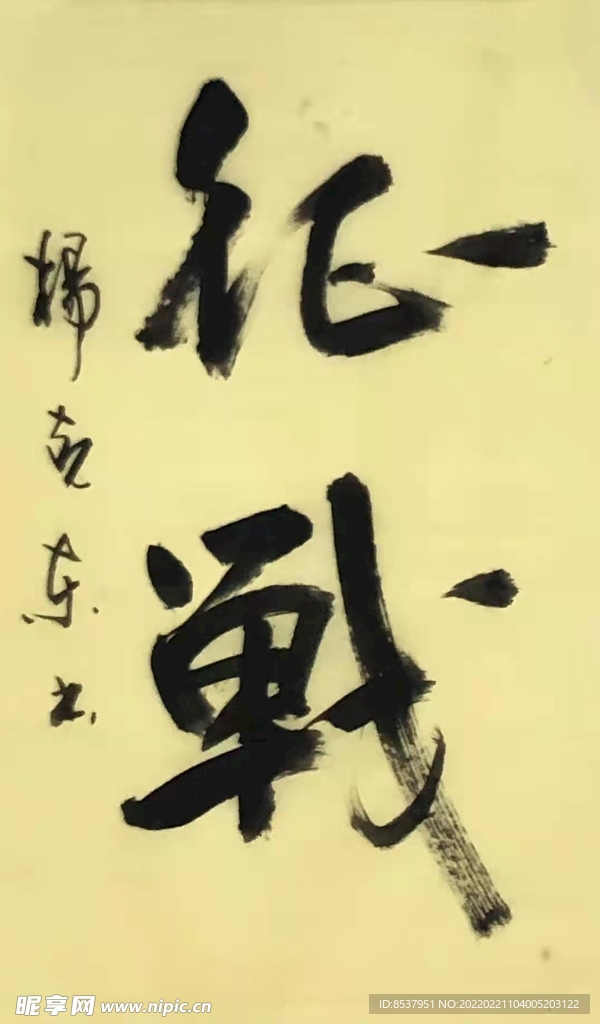 征戰
楊克东书
昵享网 www.nipic.cn
ID:8537951 NO:20220221104005203122